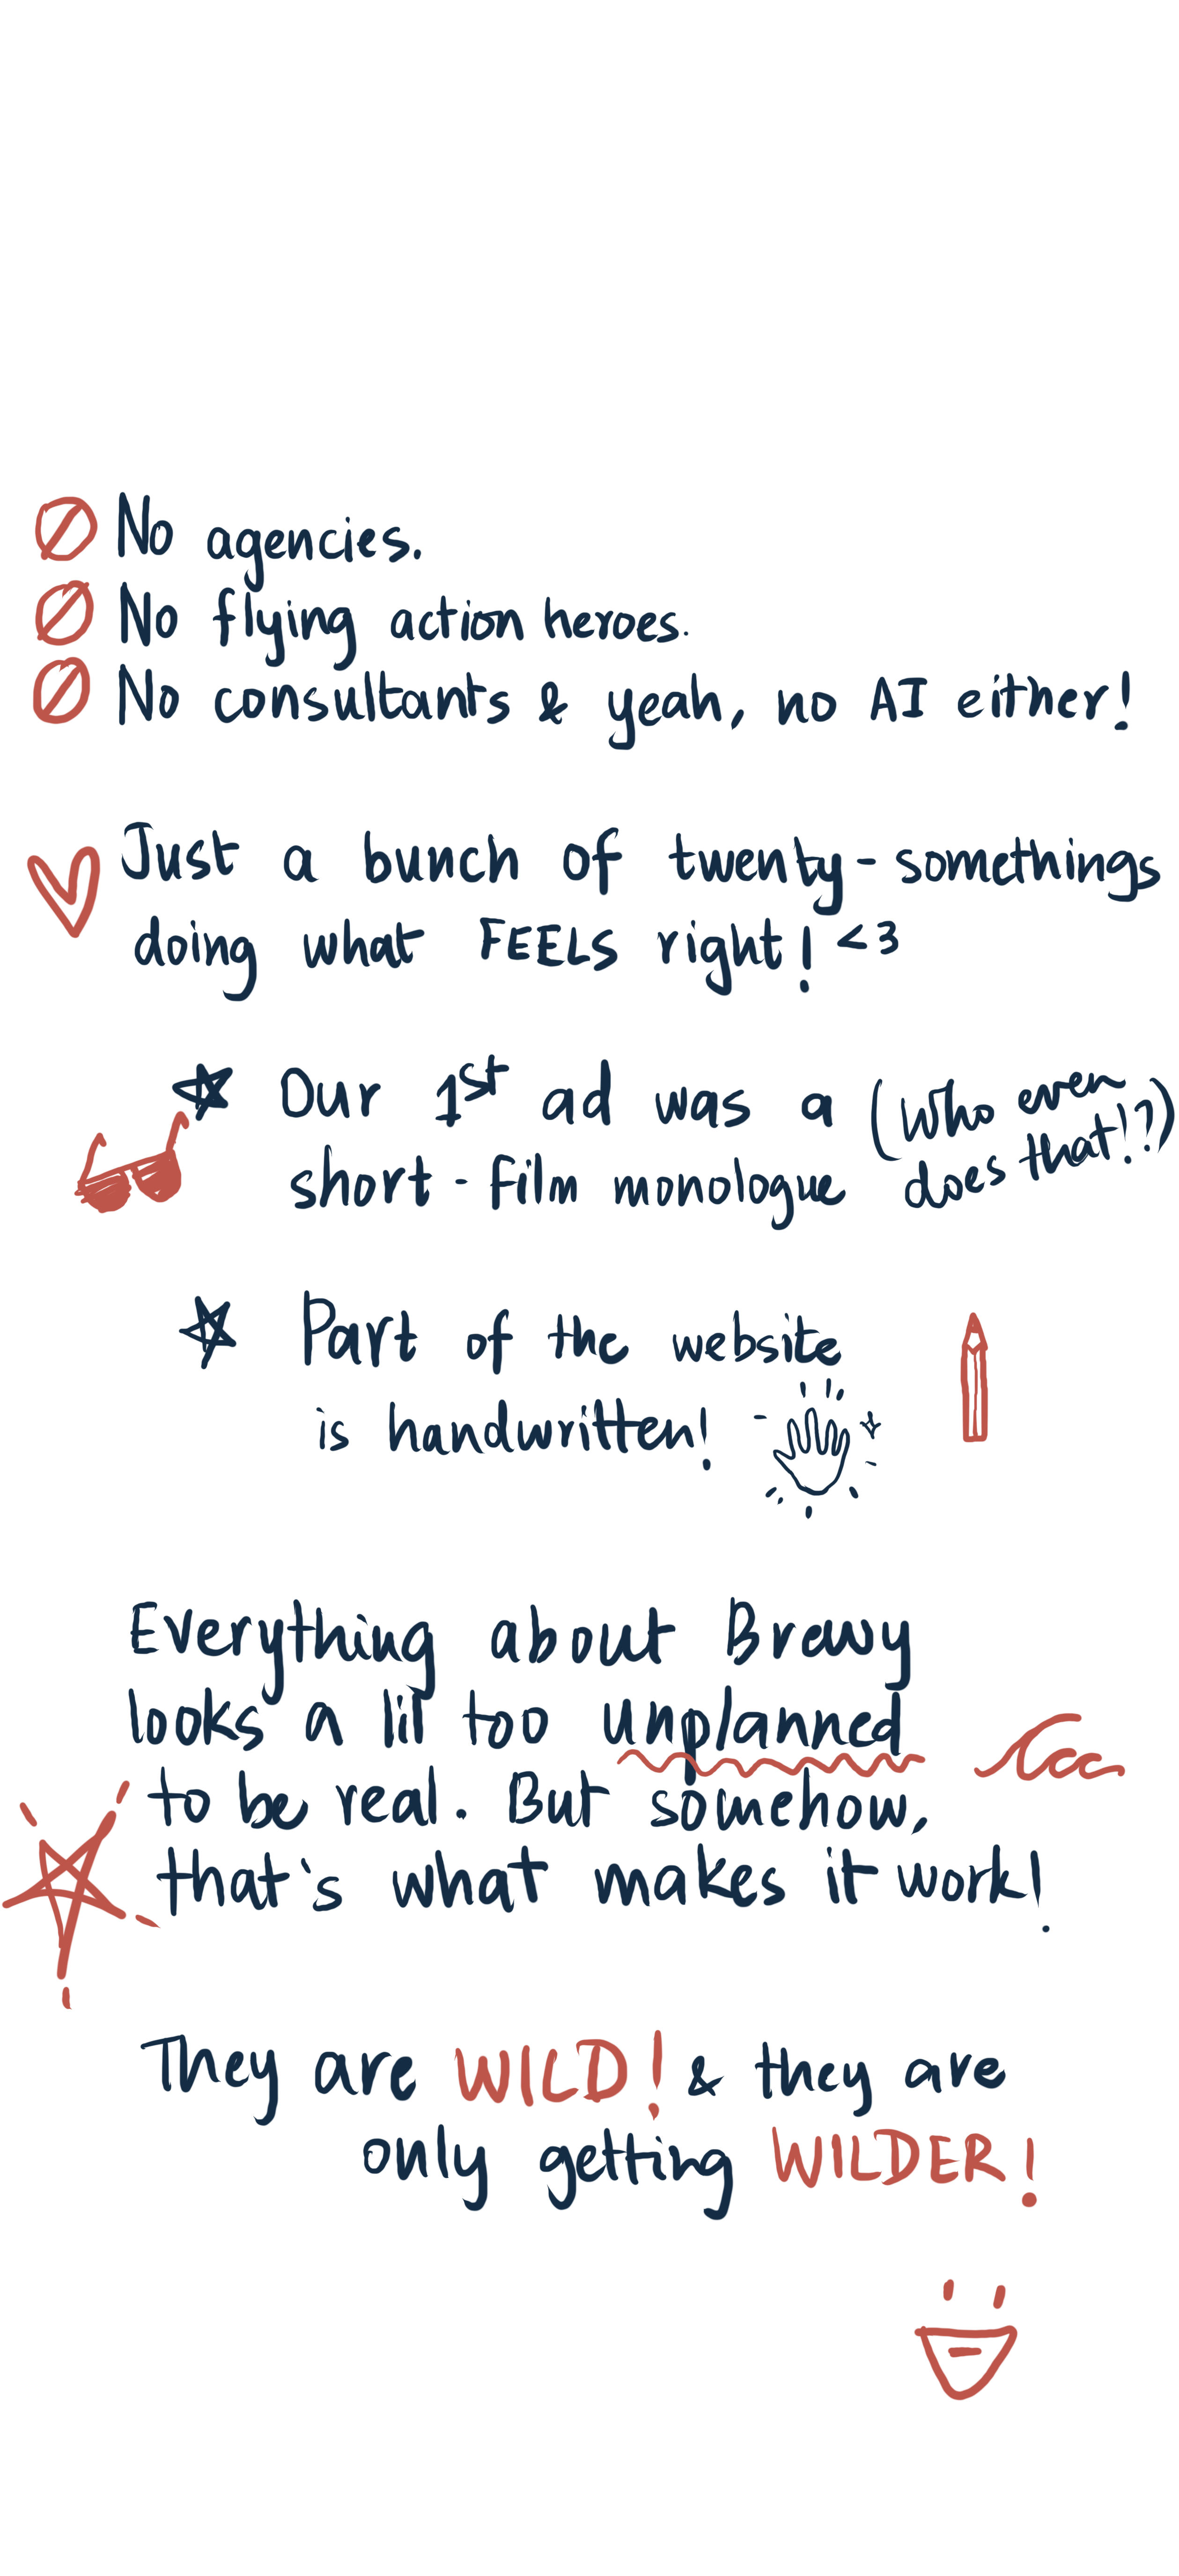 No agencies.
No flying action heroes.
No consultants & yeah, no AI either!
Just a bunch of twenty-somethings
doing what FEELS right! <3
Our 1st ad was a
short-film monologue
(who even
does that!?)
Part of the website
is handwritten!
Everything about Brewy
looks a lil too unplanned
to be real. But somehow,
that's what makes it work!
They are WILD! & they are
only getting WILDER!